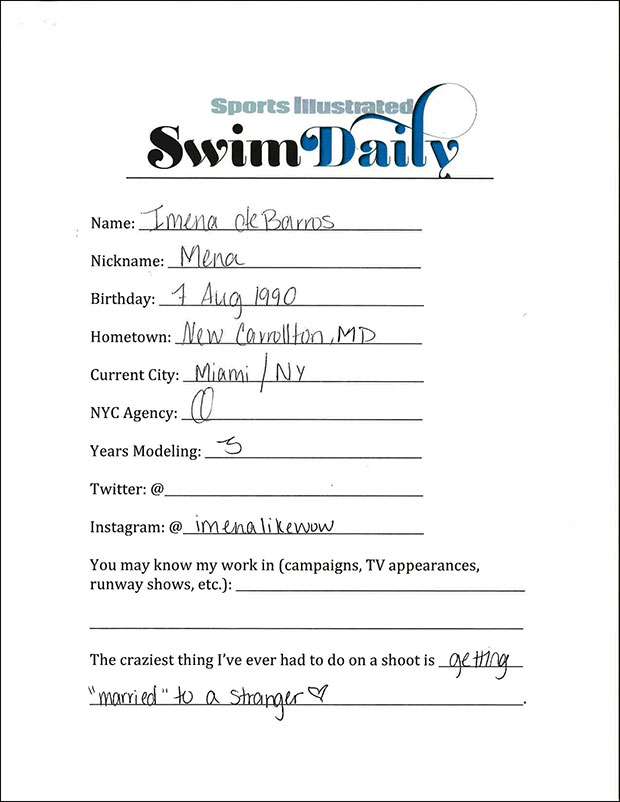 Sports Illustrated
Swim Daily
Name: Imena deBarros
Nickname: Mena
Birthday: 7 Aug 1990
Hometown: New Carrollton, MD
Current City: Miami / NY
NYC Agency:
Years Modeling: 3
Twitter: @
Instagram: @ imenalikewow
You may know my work in (campaigns, TV appearances,
runway shows, etc.):
The craziest thing I've ever had to do on a shoot is getting
"married" to a stranger ♡.